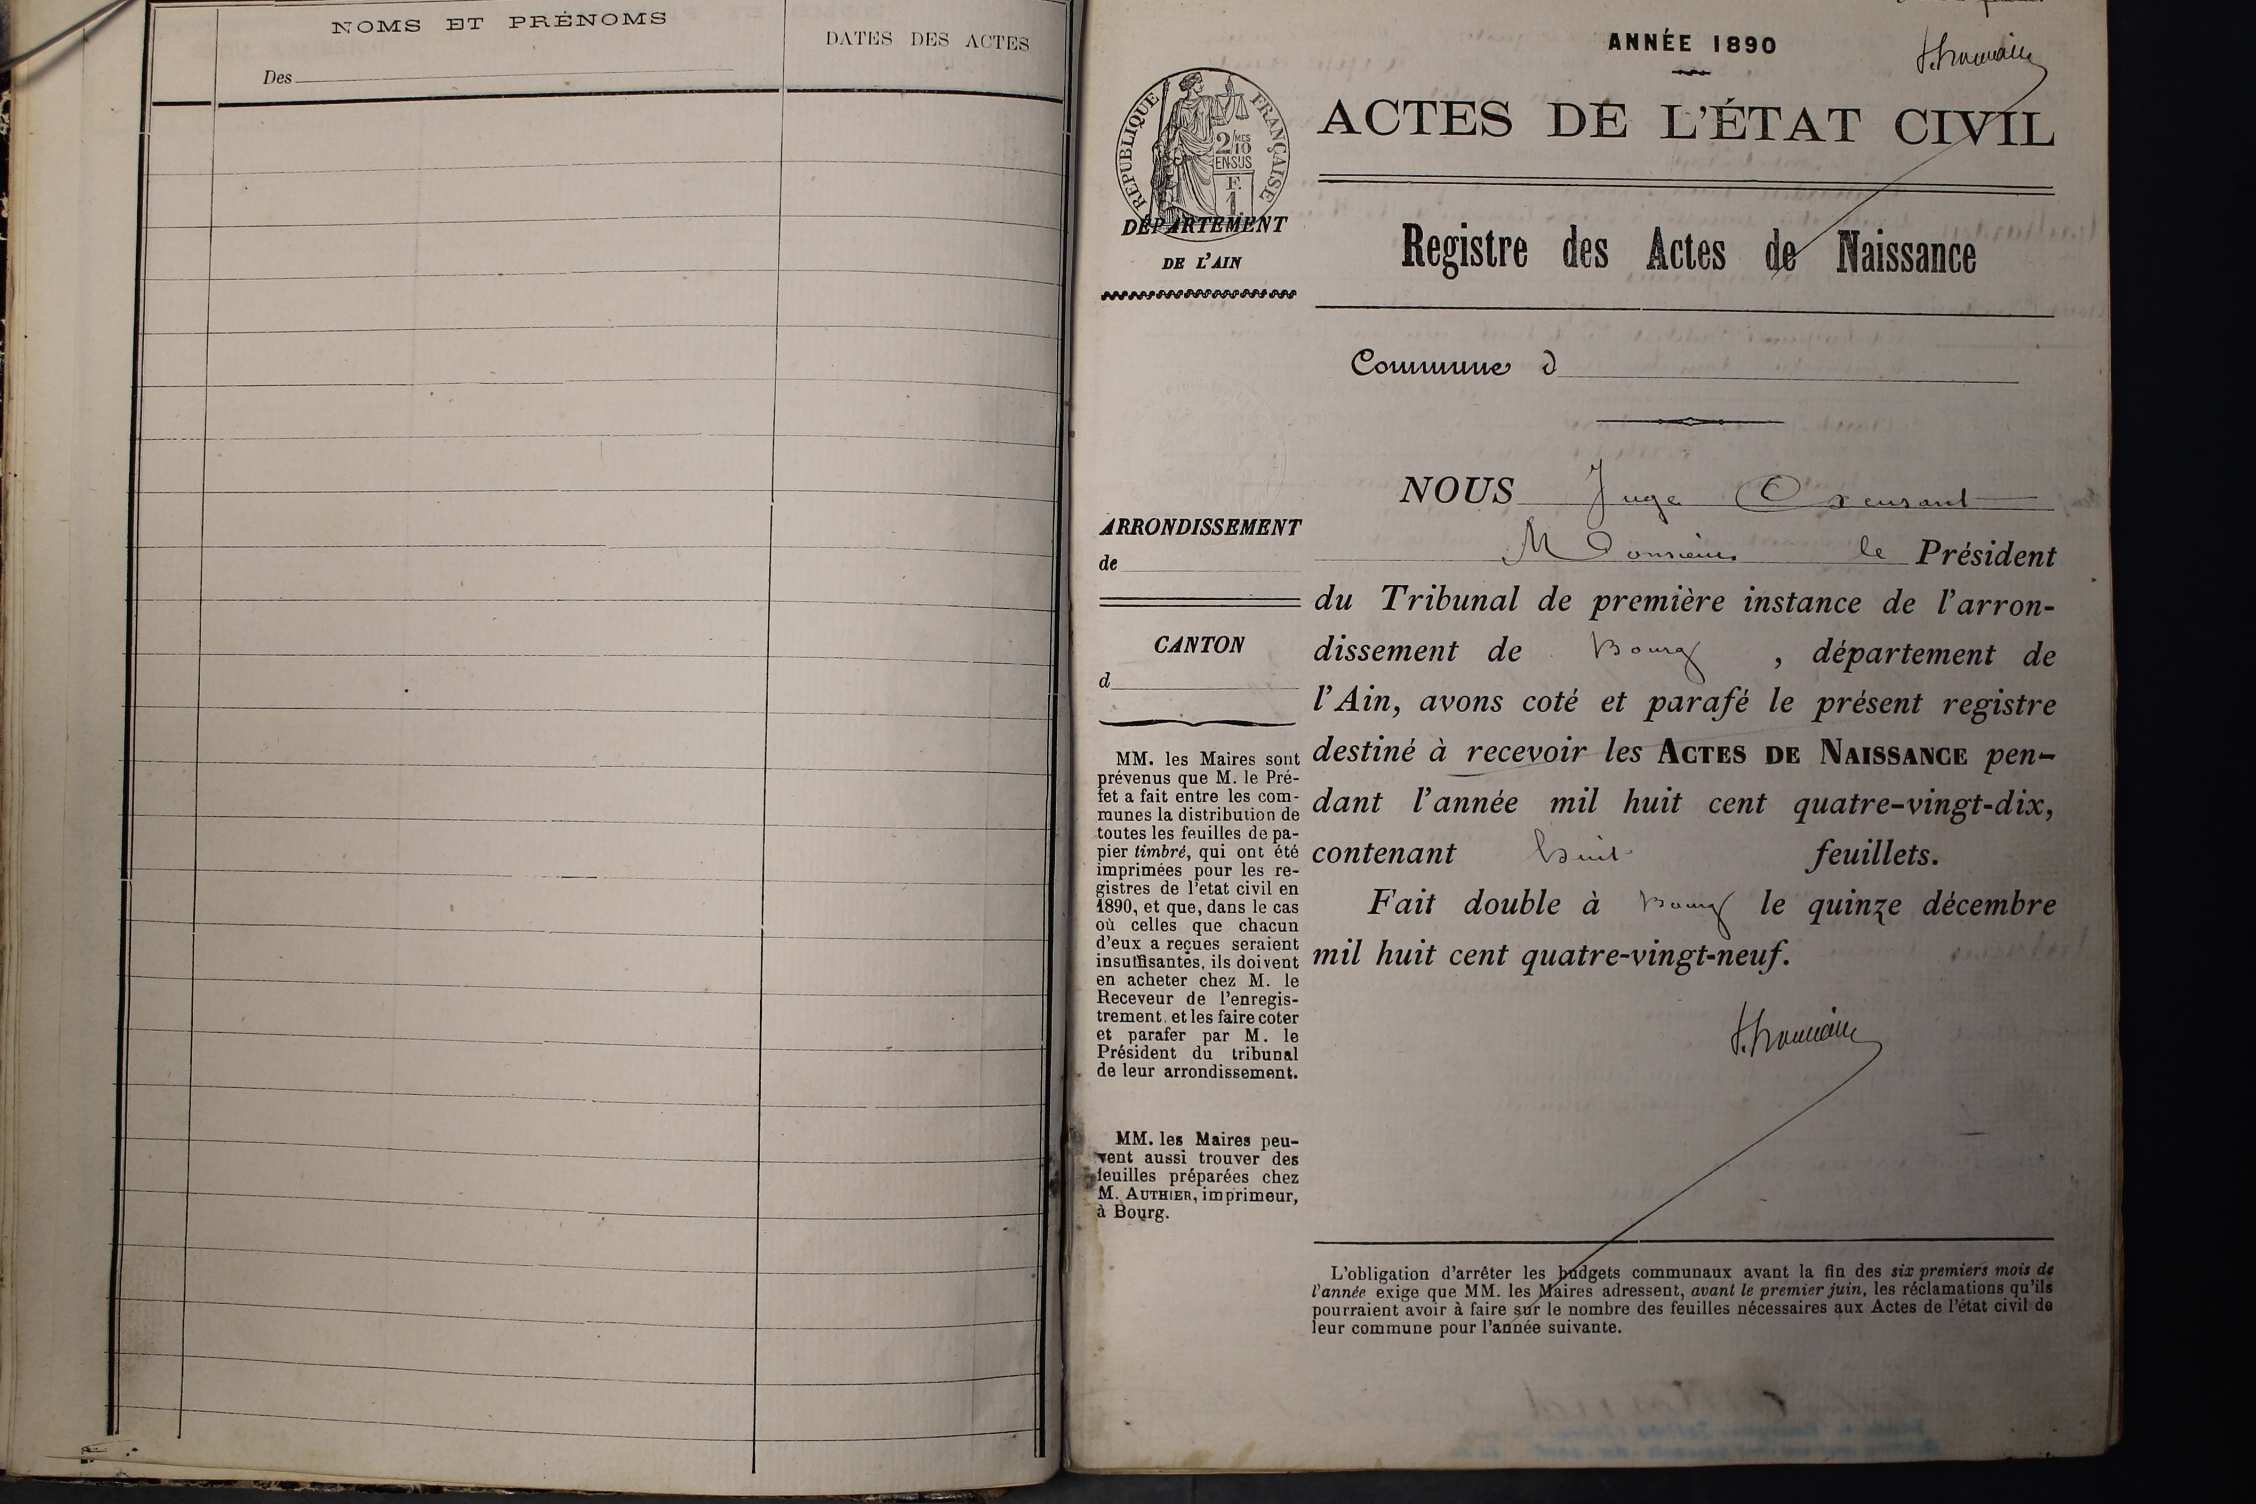 NOMS ET PRÉNOMS
DATES DES ACTES
Des
ANNÉE 1890
ACTES DE L'ÉTAT CIVIL
RÉPUBLIQUE FRANÇAISE
2/MES
10
EN SUS
F.
1
DÉPARTEMENT
DE L'AIN
Registre des Actes de Naissance
Commune d
ARRONDISSEMENT
de
CANTON
d
MM. les Maires sont
prévenus que M. le Pré-
fet a fait entre les com-
munes la distribution de
toutes les feuilles de pa-
pier timbré, qui ont été
imprimées pour les re-
gistres de l'etat civil en
1890, et que, dans le cas
où celles que chacun
d'eux a reçues seraient
insuffisantes, ils doivent
en acheter chez M. le
Receveur de l'enregis-
trement, et les faire coter
et parafer par M. le
Président du tribunal
de leur arrondissement.
MM. les Maires peu-
vent aussi trouver des
feuilles préparées chez
M. AUTHIER, imprimeur,
à Bourg.
NOUS Juge
Monsieur le Président
du Tribunal de première instance de l'arron-
dissement de Bourg, département de
l'Ain, avons coté et parafé le présent registre
destiné à recevoir les ACTES DE NAISSANCE pen-
dant l'année mil huit cent quatre-vingt-dix,
contenant huit feuillets.
Fait double à Bourg le quinze décembre
mil huit cent quatre-vingt-neuf.
L'obligation d'arrêter les budgets communaux avant la fin des six premiers mois de
l'année exige que MM. les Maires adressent, avant le premier juin, les réclamations qu'ils
pourraient avoir à faire sur le nombre des feuilles nécessaires aux Actes de l'état civil de
leur commune pour l'année suivante.